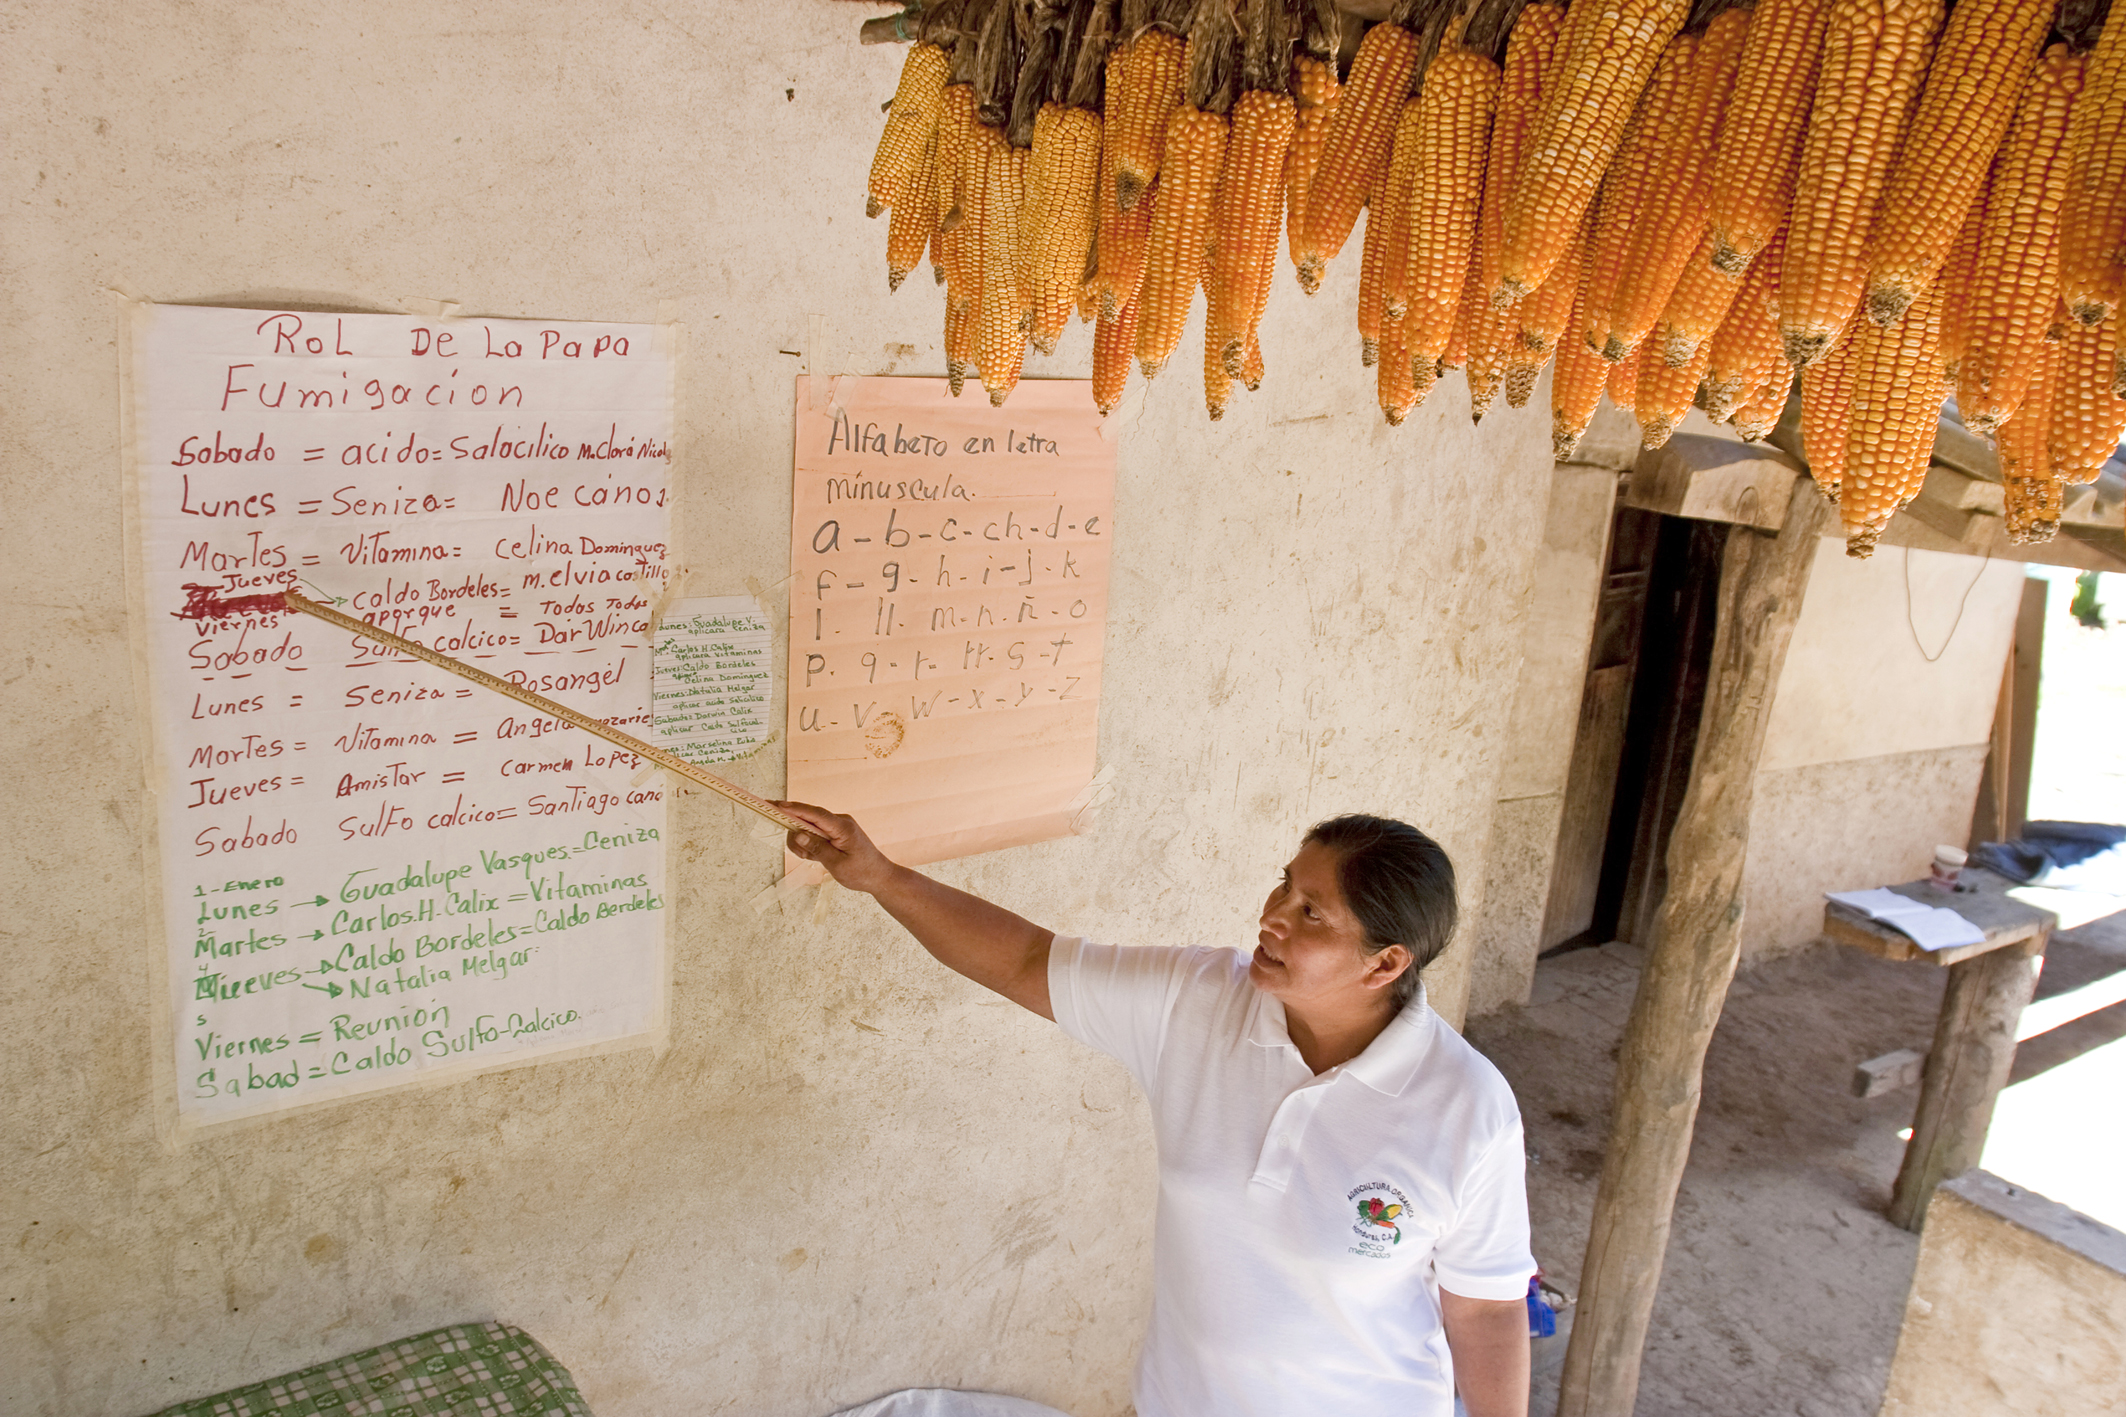 RoL De La PaPa
Fumigacion
Sabado = acido = Salacilico M. Clara
Lunes = Seniza = Noe
Martes = Vitamina = Celina Dominguez
Jueves
caldo Bordeles = m. elvia costillo
Viernes aporque = Todos Todos
Sabado Sulfo calcico = DarWin
Lunes = Seniza = Rosangel
Martes = Vitamina = Angela
Jueves = AmisTar = Carmen Lopez
Sabado Sulfo calcico = SanTiago
1 - Enero
Lunes → Guadalupe Vasques. = Ceniza
2
Martes → Carlos. H. Calix = Vitaminas
4
Jueves → Caldo Bordeles = Caldo Berdeles
→ Natalia Melgar.
5
Viernes = Reunión
Sabad = Caldo Sulfo-Calcico.
Lunes: Guadalupe V.
aplicara Ceniza
Carlos H. Calix
aplicara vitaminas
Jueves: Caldo Bordeles
Celina Dominguez
Viernes: Natalia Melgar
aplicar acido Salicilico
Sabado: Darwin Calix
aplicar Caldo
Marselina
Ceniza,
Angela
Alfabeto en letra
minuscula.
a - b - c - ch - d - e
f - g - h - i - j - k
l. ll. m. n. ñ. o
p. q - r - rr - s - t
u - v - w - x - y - z
AGRICULTURA ORGANICA
HONDURAS, C.A.
eco
mercados